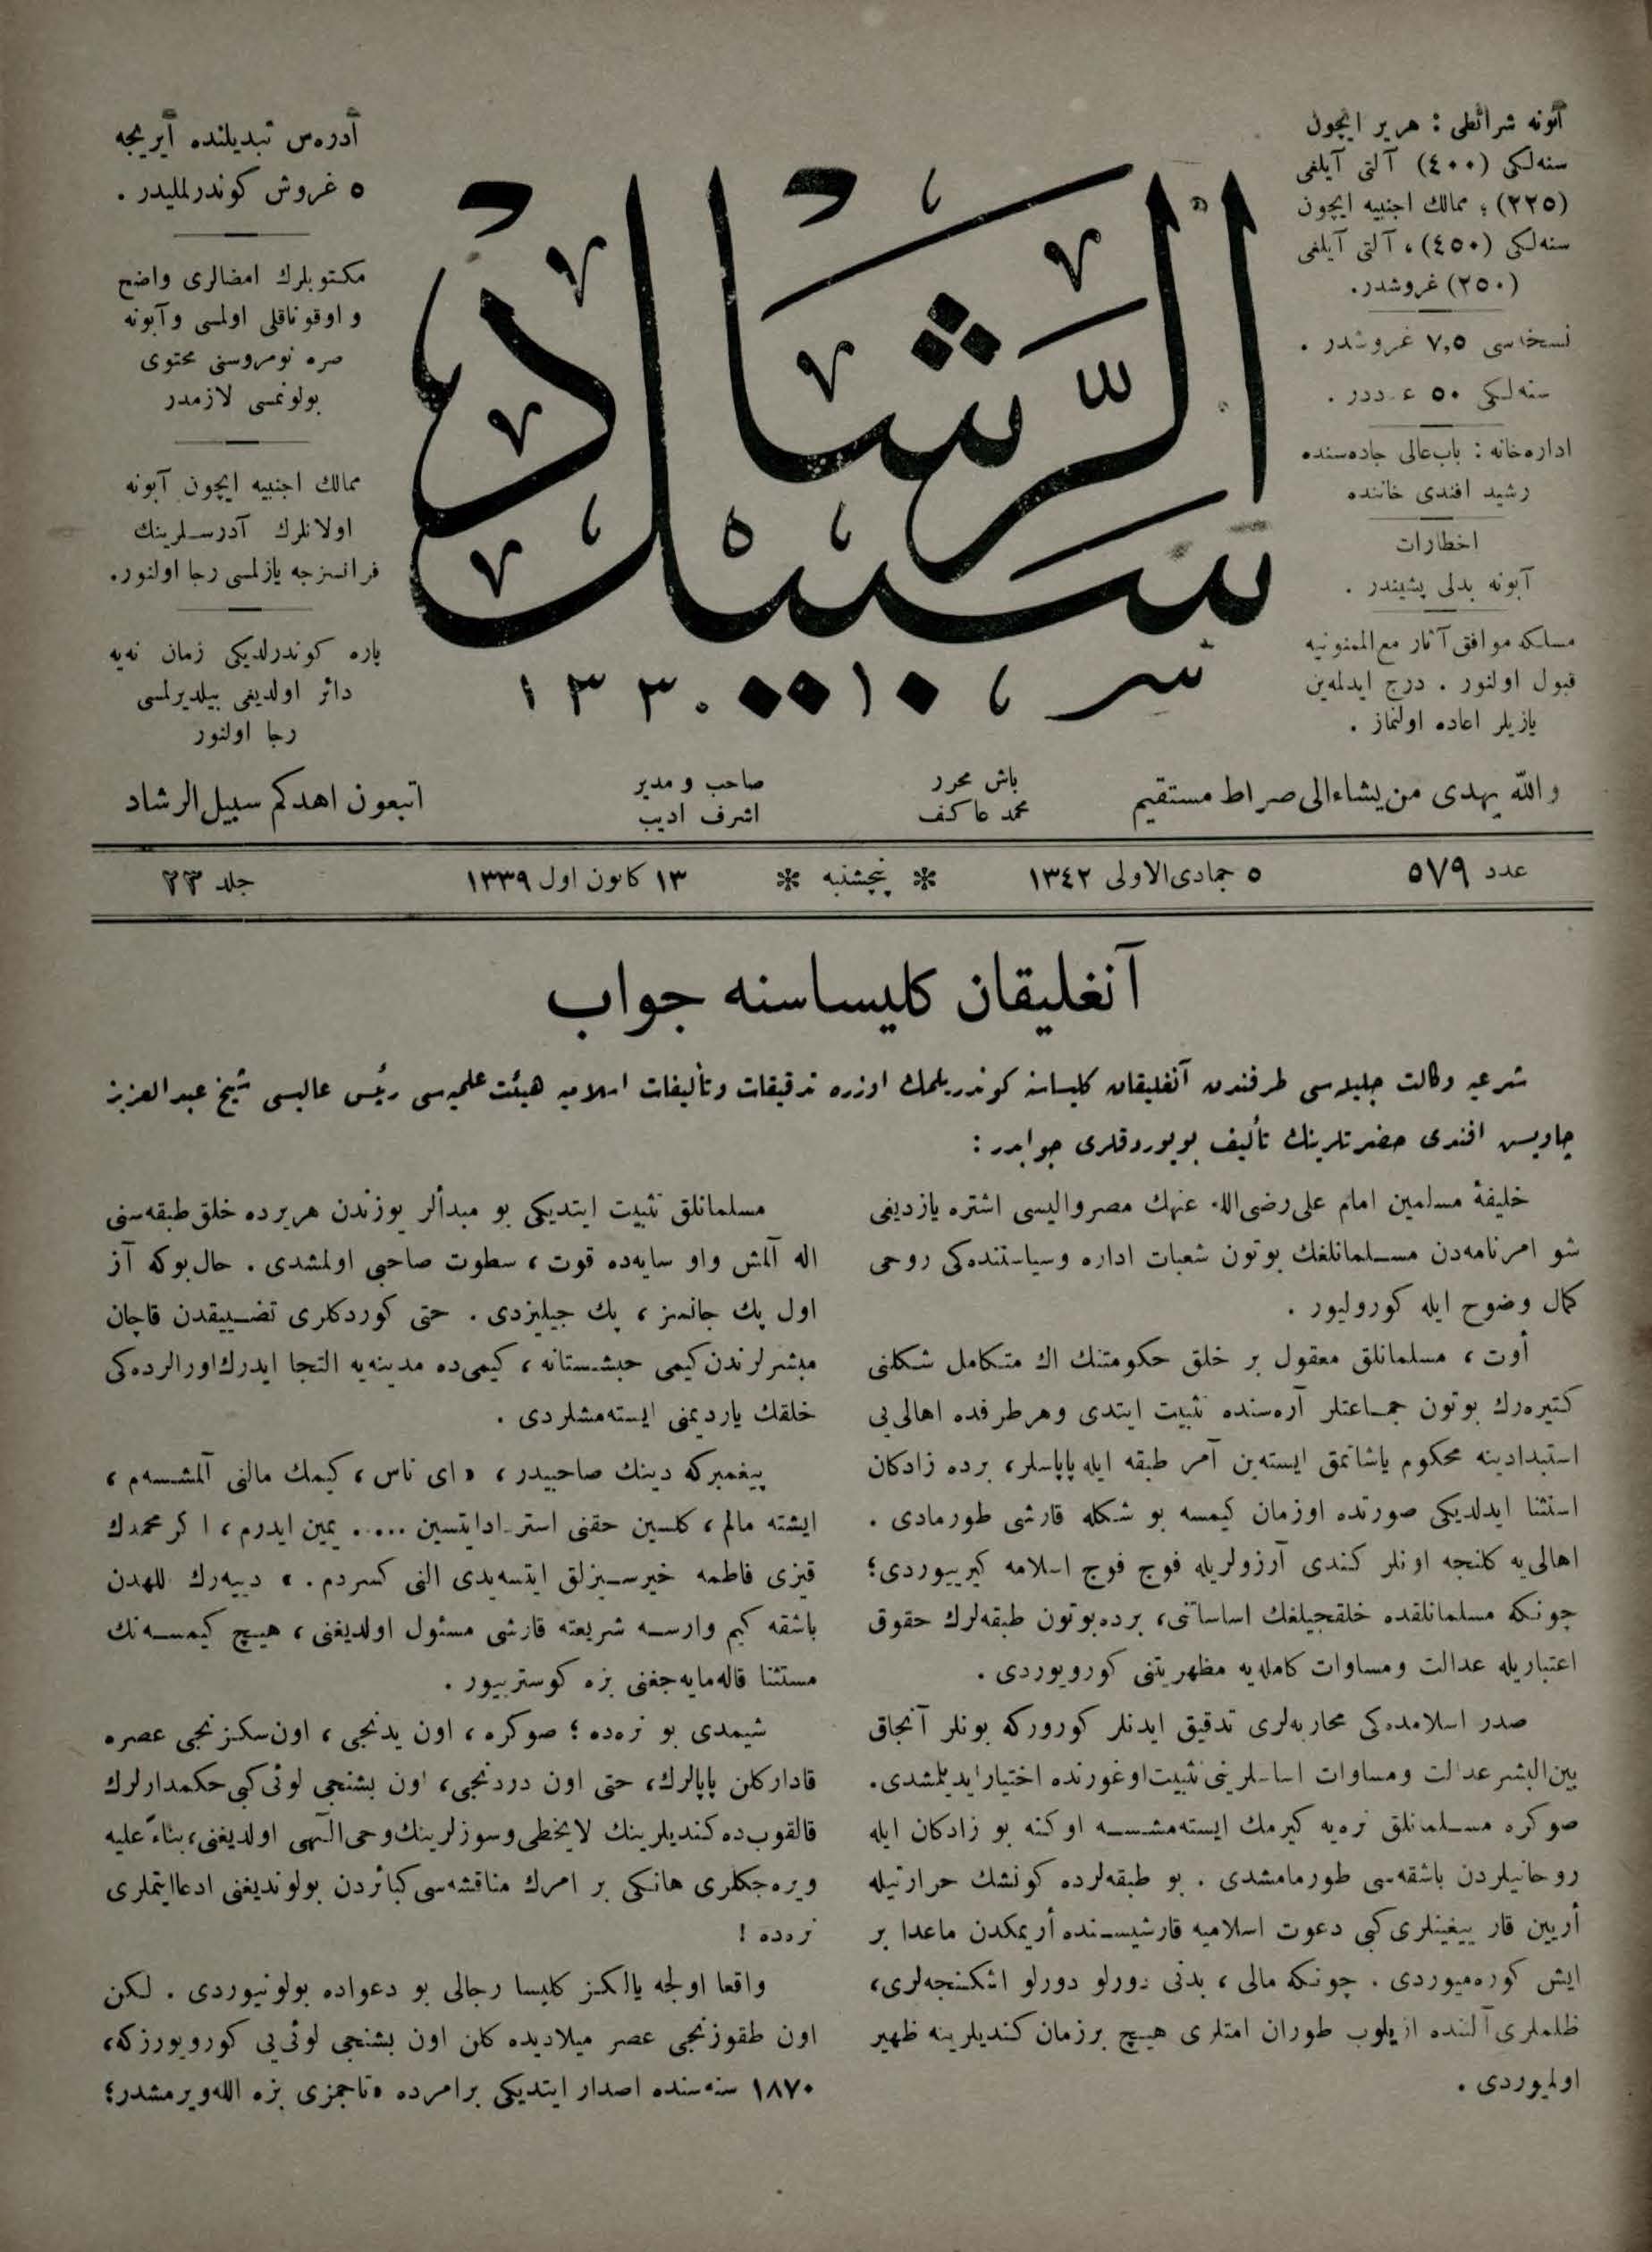 آبونه شرائطی : هر یر ایچون
سنه‌لكی (٤٠٠) آلتی آیلغی
(٢٢٥) ؛ ممالك اجنبیه ایچون
سنه‌لكی (٤٥٠) ، آلتی آیلغی
(٢٥٠) غروشدر .
نسخه‌سی ٧,٥ غروشدر .
سنه‌لكی ٥٠ عدددر .
اداره‌خانه : باب‌عالی جاده‌سنده
رشید افندی خاننده
اخطارات
آبونه بدلی پشیندر .
مسلكه موافق آثار مع‌الممنونیه
قبول اولنور . درج ایدلمه‌ین
یازیلر اعاده اولنماز .
سبیل الرشاد
آدره‌س تبدیلنده آیریجه
٥ غروش كوندرلملیدر .
مكتوبلرك امضالری واضح
و اوقوناقلی اولمسی و آبونه
صره نومروسنی محتوی
بولونمسی لازمدر
ممالك اجنبیه ایچون آبونه
اولانلرك آدرسلرینك
فرانسزجه یازلمسی رجا اولنور.
پاره كوندرلدیكی زمان نه‌یه
دائر اولدیغی بیلدیرلمسی
رجا اولنور
والله یهدی من یشاء الی صراط مستقیم
باش محرر
محمد عاكف
صاحب و مدیر
اشرف ادیب
اتبعون اهدكم سبیل الرشاد
عدد ٥٧٩ ٥ جمادی‌الاولی ١٣٤٢ * پنجشنبه * ١٣ كانون اول ١٣٣٩ جلد ٢٣
آنغلیقان كلیساسنه جواب
شرعیه وكالت جلیله‌سی طرفندن آنغلیقان كلیساسنه كوندریلمك اوزره تدقیقات و تألیفات اسلامیه هیئت علمیه‌سی رئیس عالیسی شیخ عبدالعزیز
چاویش افندی حضرتلرینك تألیف بویوردقلری جوابدر :
خلیفهٔ مسلمین امام علی رضی‌الله عنهك مصر والیسی اشتره یازدیغی
شو امرنامه‌دن مسلمانلغك بوتون شعبات اداره و سیاستنده‌كی روحی
كمال وضوح ایله كورولیور .
أوت ، مسلمانلق معقول بر خلق حكومتنك اك متكامل شكلنی
كتیره‌رك بوتون جماعتلر آره‌سنده تثبیت ایتدی و هر طرفده اهالی‌یی
استبدادینه محكوم یاشاتمق ایسته‌ین آمر طبقه ایله پاپاسلر ، برده زادكان
استثنا ایدلدیكی صورتده او زمان كیمسه بو شكله قارشی طورمادی .
اهالی‌یه كلنجه اونلر كندی آرزولریله فوج فوج اسلامه كیرییوردی ؛
چونكه مسلمانلقده خلقجیلغك اساساتنی ، برده بوتون طبقه‌لرك حقوق
اعتباریله عدالت و مساوات كامله‌یه مظهریتنی كورویوردی .
صدر اسلامده‌كی محاربه‌لری تدقیق ایدنلر كورورکه بونلر آنجاق
بین‌البشر عدالت و مساوات اساسلرینی تثبیت اوغورنده اختیار ایدیلمشدی .
صوكره مسلمانلق نره‌یه كیرمك ایسته‌مشسه اوكنه بو زادكان ایله
روحانیلردن باشقه‌سی طورمامشدی . بو طبقه‌لرده كونشك حرارتیله
أریین قار ییغینلری كبی دعوت اسلامیه قارشیسنده أریمكدن ماعدا بر
ایش كوره‌میوردی . چونكه مالی ، بدنی دورلو دورلو اشكنجه‌لری ،
ظلملری آلتنده ازیلوب طوران امتلری هیچ بر زمان كندیلرینه ظهیر
اولمیوردی .
مسلمانلق تثبیت ایتدیكی بو مبدألر یوزندن هر یرده خلق طبقه‌سنی
اله آلمش و او سایه‌ده قوت ، سطوت صاحبی اولمشدی . حال بوكه آز
اول پك جانسز ، پك جیلیزدی . حتی كوردكلری تضییقدن قاچان
مبشرلرندن كیمی حبشستانه ، كیمی‌ده مدینه‌یه التجا ایدرك اورالرده‌كی
خلقك یاردیمنی ایسته‌مشلردی .
پیغمبر كه دینك صاحبیدر ، « ای ناس ، كیمك مالنی آلمشسه‌م ،
ایشته مالم ، كلسین حقنی استرداد ایتسین ..... یمین ایدرم ، اكر محمدك
قیزی فاطمه خیرسیزلق ایتسه‌یدی النی كسردم . » دییه‌رك اللهدن
باشقه كیم وارسه شریعته قارشی مسئول اولدیغنی ، هیچ كیمسه‌نك
مستثنا قاله‌مایه‌جغنی بزه كوستریور .
شیمدی بو نره‌ده ؛ صوكره ، اون یدنجی ، اون سكزنجی عصره
قادار كلن پاپالرك ، حتی اون دردنجی ، اون بشنجی لوئی كبی حكمدارلرك
قالقوب‌ده كندیلرینك لایخطی و سوزلرینك وحی الهی اولدیغنی ، بناءً علیه
ویره‌جكلری هانكی بر امرك مناقشه‌سی كبائردن بولوندیغنی ادعا ایتملری
نره‌ده !
واقعا اولجه یالكز كلیسا رجالی بو دعواده بولونیوردی . لكن
اون طقوزنجی عصر میلادیده كلن اون بشنجی لوئی‌یی كورویورزكه ،
١٨٧٠ سنه‌سنده اصدار ایتدیكی بر امرده « تاجمزی بزه الله ویرمشدر ؛